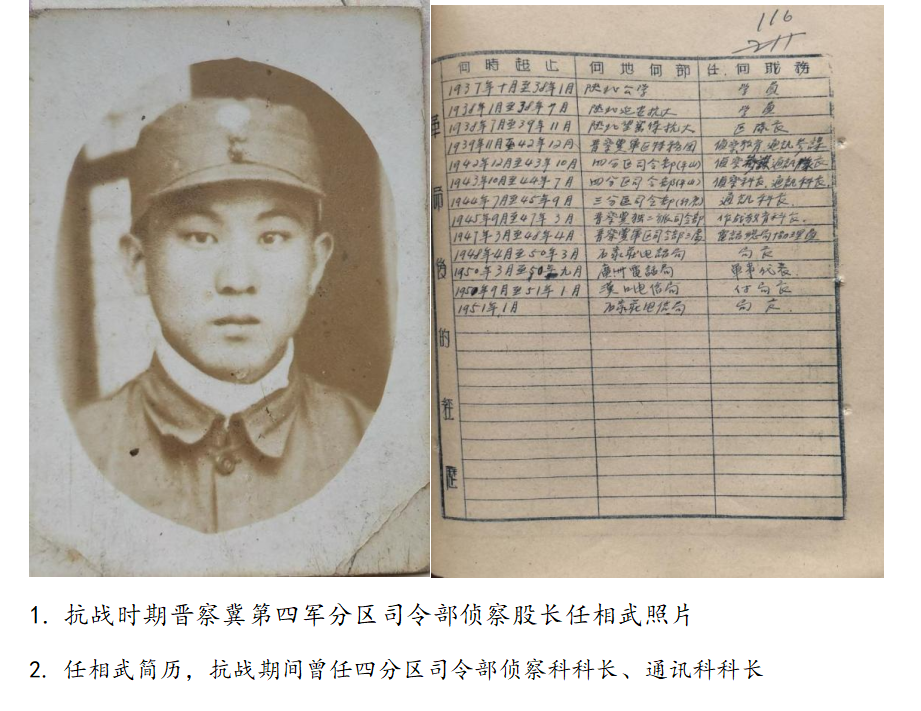 116
何時起止 何地何部 任何職務
革命前後的經歷
1937年十月至38年1月 陕北公学 学員
1938年1月至38年7月 陕北延安抗大 学員
1938年7月至39年11月 陕北 抗大 区隊長
1939年11月至42年12月 晋察冀軍区 偵察教育通訊参謀
1942年12月至43年10月 四分区司令部 偵察 通訊 長
1943年10月至44年7月 四分区司令部 偵察科長、通訊科長
1944年7月至45年9月 三分区司令部 通訊科長
1945年9月至47年3月 晋察冀独二旅司令部 作战教育科長
1947年3月至48年4月 晋察冀軍区司令部三處 電話總局
1948年4月至50年3月 石家莊电話局 局長
1950年3月至50年九月 廣州電話局 軍事代表
1950年9月至51年1月 漢口电信局 付局長
1951年1月 石家莊电信局 局長
1. 抗战时期晋察冀第四军分区司令部侦察股长任相武照片
2. 任相武简历，抗战期间曾任四分区司令部侦察科科长、通讯科科长